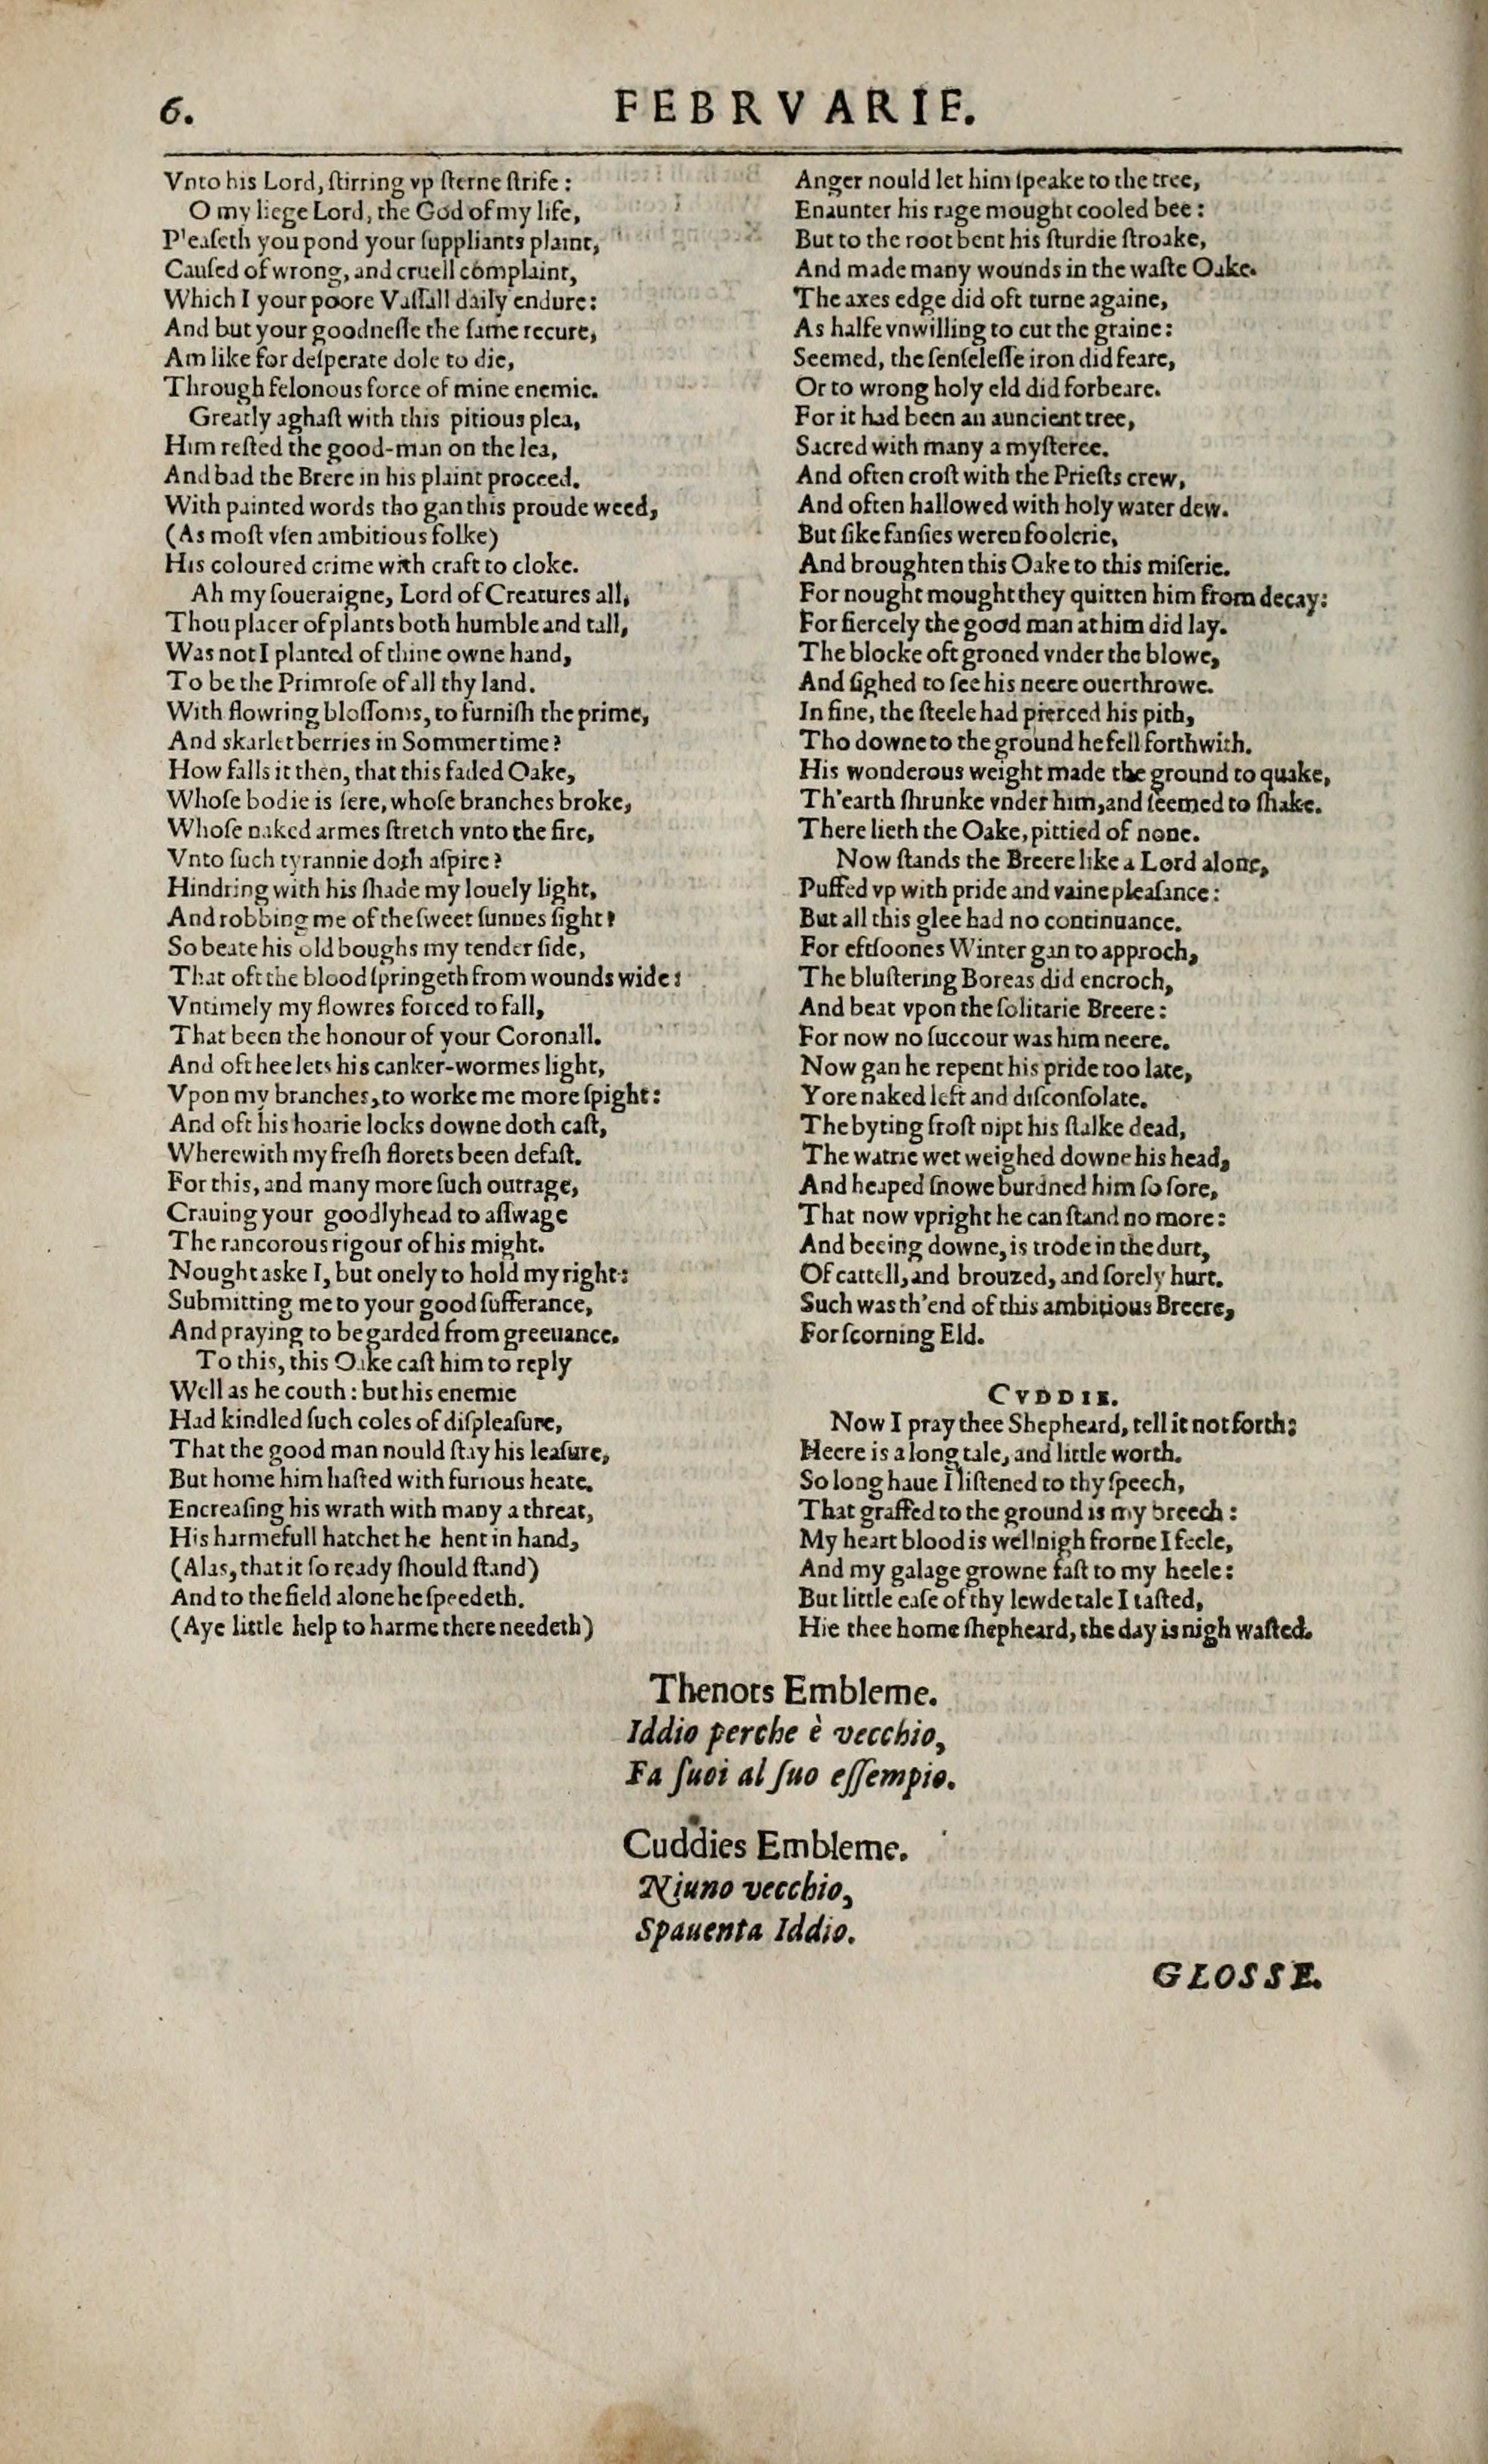 6.
FEBRVARIE.
Vnto his Lord, ſtirring vp ſterne ſtrife:
O my liege Lord, the God of my life,
P'eaſeth you pond your ſuppliants plaint,
Cauſed of wrong, and cruell complaint,
Which I your poore Vaſſall daily endure:
And but your goodneſſe the ſame recure,
Am like for deſperate dole to die,
Through felonous force of mine enemie.
Greatly aghaſt with this pitious plea,
Him reſted the good-man on the lea,
And bad the Brere in his plaint proceed.
With painted words tho gan this proude weed,
(As moſt vſen ambitious folke)
His coloured crime with craft to cloke.
Ah my ſoueraigne, Lord of Creatures all,
Thou placer of plants both humble and tall,
Was not I planted of thine owne hand,
To be the Primroſe of all thy land.
With flowring bloſſoms, to furniſh the prime,
And skarlet berries in Sommer time?
How falls it then, that this faded Oake,
Whoſe bodie is ſere, whoſe branches broke,
Whoſe naked armes ſtretch vnto the fire,
Vnto ſuch tyrannie doth aſpire?
Hindring with his ſhade my louely light,
And robbing me of the ſweet ſunnes ſight?
So beate his old boughs my tender ſide,
That oft the blood ſpringeth from wounds wide:
Vntimely my flowres forced to fall,
That been the honour of your Coronall.
And oft hee lets his canker-wormes light,
Vpon my branches, to worke me more ſpight:
And oft his hoarie locks downe doth caſt,
Wherewith my freſh florets been defaſt.
For this, and many more ſuch outrage,
Crauing your goodlyhead to aſſwage
The rancorous rigour of his might.
Nought aske I, but onely to hold my right:
Submitting me to your good ſufferance,
And praying to be garded from greeuance.
To this, this Oake caſt him to reply
Well as he couth: but his enemie
Had kindled ſuch coles of diſpleaſure,
That the good man nould ſtay his leaſure,
But home him haſted with furious heate.
Encreaſing his wrath with many a threat,
His harmefull hatchet he hent in hand,
(Alas, that it ſo ready ſhould ſtand)
And to the field alone he ſpeedeth.
(Aye little help to harme there needeth)
Anger nould let him ſpeake to the tree,
Enaunter his rage mought cooled bee:
But to the root bent his ſturdie ſtroake,
And made many wounds in the waſte Oake.
The axes edge did oft turne againe,
As halfe vnwilling to cut the graine:
Seemed, the ſenſeleſſe iron did feare,
Or to wrong holy eld did forbeare.
For it had been an auncient tree,
Sacred with many a myſteree.
And often croſt with the Prieſts crew,
And often hallowed with holy water dew.
But ſike fanſies weren foolerie,
And broughten this Oake to this miſerie.
For nought mought they quitten him from decay:
For fiercely the good man at him did lay.
The blocke oft groned vnder the blowe,
And ſighed to ſee his neere ouerthrowe.
In fine, the ſteele had pierced his pith,
Tho downe to the ground he fell forthwith.
His wonderous weight made the ground to quake,
Th'earth ſhrunke vnder him, and ſeemed to ſhake.
There lieth the Oake, pittied of none.
Now ſtands the Breere like a Lord alone,
Puffed vp with pride and vaine pleaſance:
But all this glee had no continuance.
For eftſoones Winter gan to approch,
The bluſtering Boreas did encroch,
And beat vpon the ſolitarie Breere:
For now no ſuccour was him neere.
Now gan he repent his pride too late,
Yore naked left and diſconſolate.
The byting froſt nipt his ſtalke dead,
The watrie wet weighed downe his head,
And heaped ſnowe burdned him ſo ſore,
That now vpright he can ſtand no more:
And beeing downe, is trode in the durt,
Of cattell, and brouzed, and ſorely hurt.
Such was th'end of this ambitious Breere,
For ſcorning Eld.
CVDDIE.
Now I pray thee Shepheard, tell it not forth:
Heere is a long tale, and little worth.
So long haue I liſtened to thy ſpeech,
That graffed to the ground is my breech:
My heart blood is wellnigh frorne I feele,
And my galage growne faſt to my heele:
But little eaſe of thy lewde tale I taſted,
Hie thee home ſhepheard, the day is nigh waſted.
Thenots Embleme.
Iddio perche è vecchio,
Fa ſuoi al ſuo eſſempio.
Cuddies Embleme.
Niuno vecchio,
Spauenta Iddio.
GLOSSE.